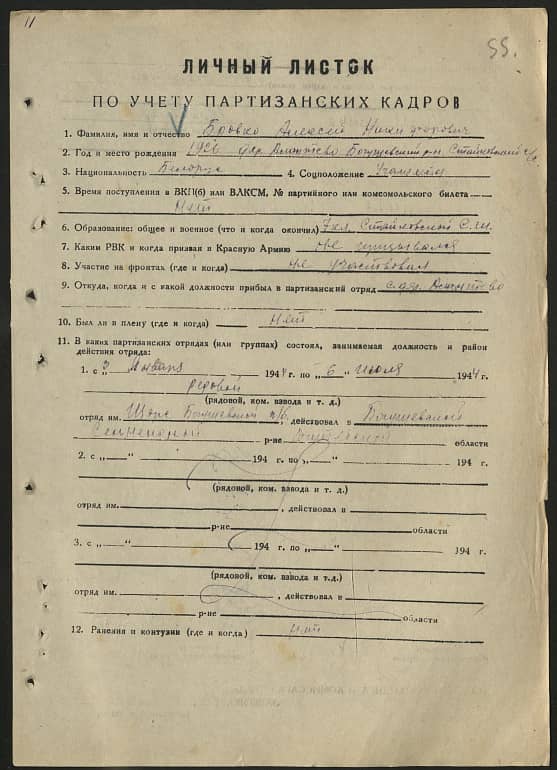 11
55.
ЛИЧНЫЙ ЛИСТОК
ПО УЧЕТУ ПАРТИЗАНСКИХ КАДРОВ
1. Фамилия, имя и отчество Бровко Алексей Никифорович
2. Год и место рождения 1926 Богушевский р-н
3. Национальность Белорус 4. Соцположение Учащийся
5. Время поступления в ВКП(б) или ВЛКСМ, № партийного или комсомольского билета
Нет
6. Образование: общее и военное (что и когда окончил) 7 кл. С.Ш.
7. Каким РВК и когда призван в Красную Армию не призывался
8. Участие на фронтах (где и когда) не участвовал
9. Откуда, когда и с какой должности прибыл в партизанский отряд с дер.
10. Был ли в плену (где и когда) Нет
11. В каких партизанских отрядах (или группах) состоял, занимаемая должность и район
действия отряда:
1. с 3 Января 1944 г. по „ 6 “ июля 1944 г.
рядовой
(рядовой, ком. взвода и т. д.)
отряд им. , действовал в
р-не области
2. с „ “ 194 г. по „ “ 194 г.
(рядовой, ком. взвода и т. д.)
отряд им. , действовал в
р-не области
3. с „ “ 194 г. по „ “ 194 г.
(рядовой, ком. взвода и т.д.)
отряд им. , действовал в
р-не области
12. Ранения и контузии (где и когда) нет